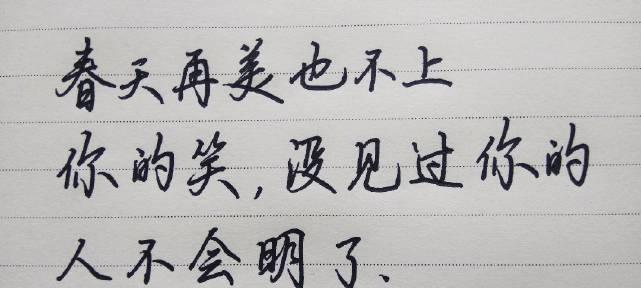 春天再美也不上
你的笑,没见过你的
人不会明了、